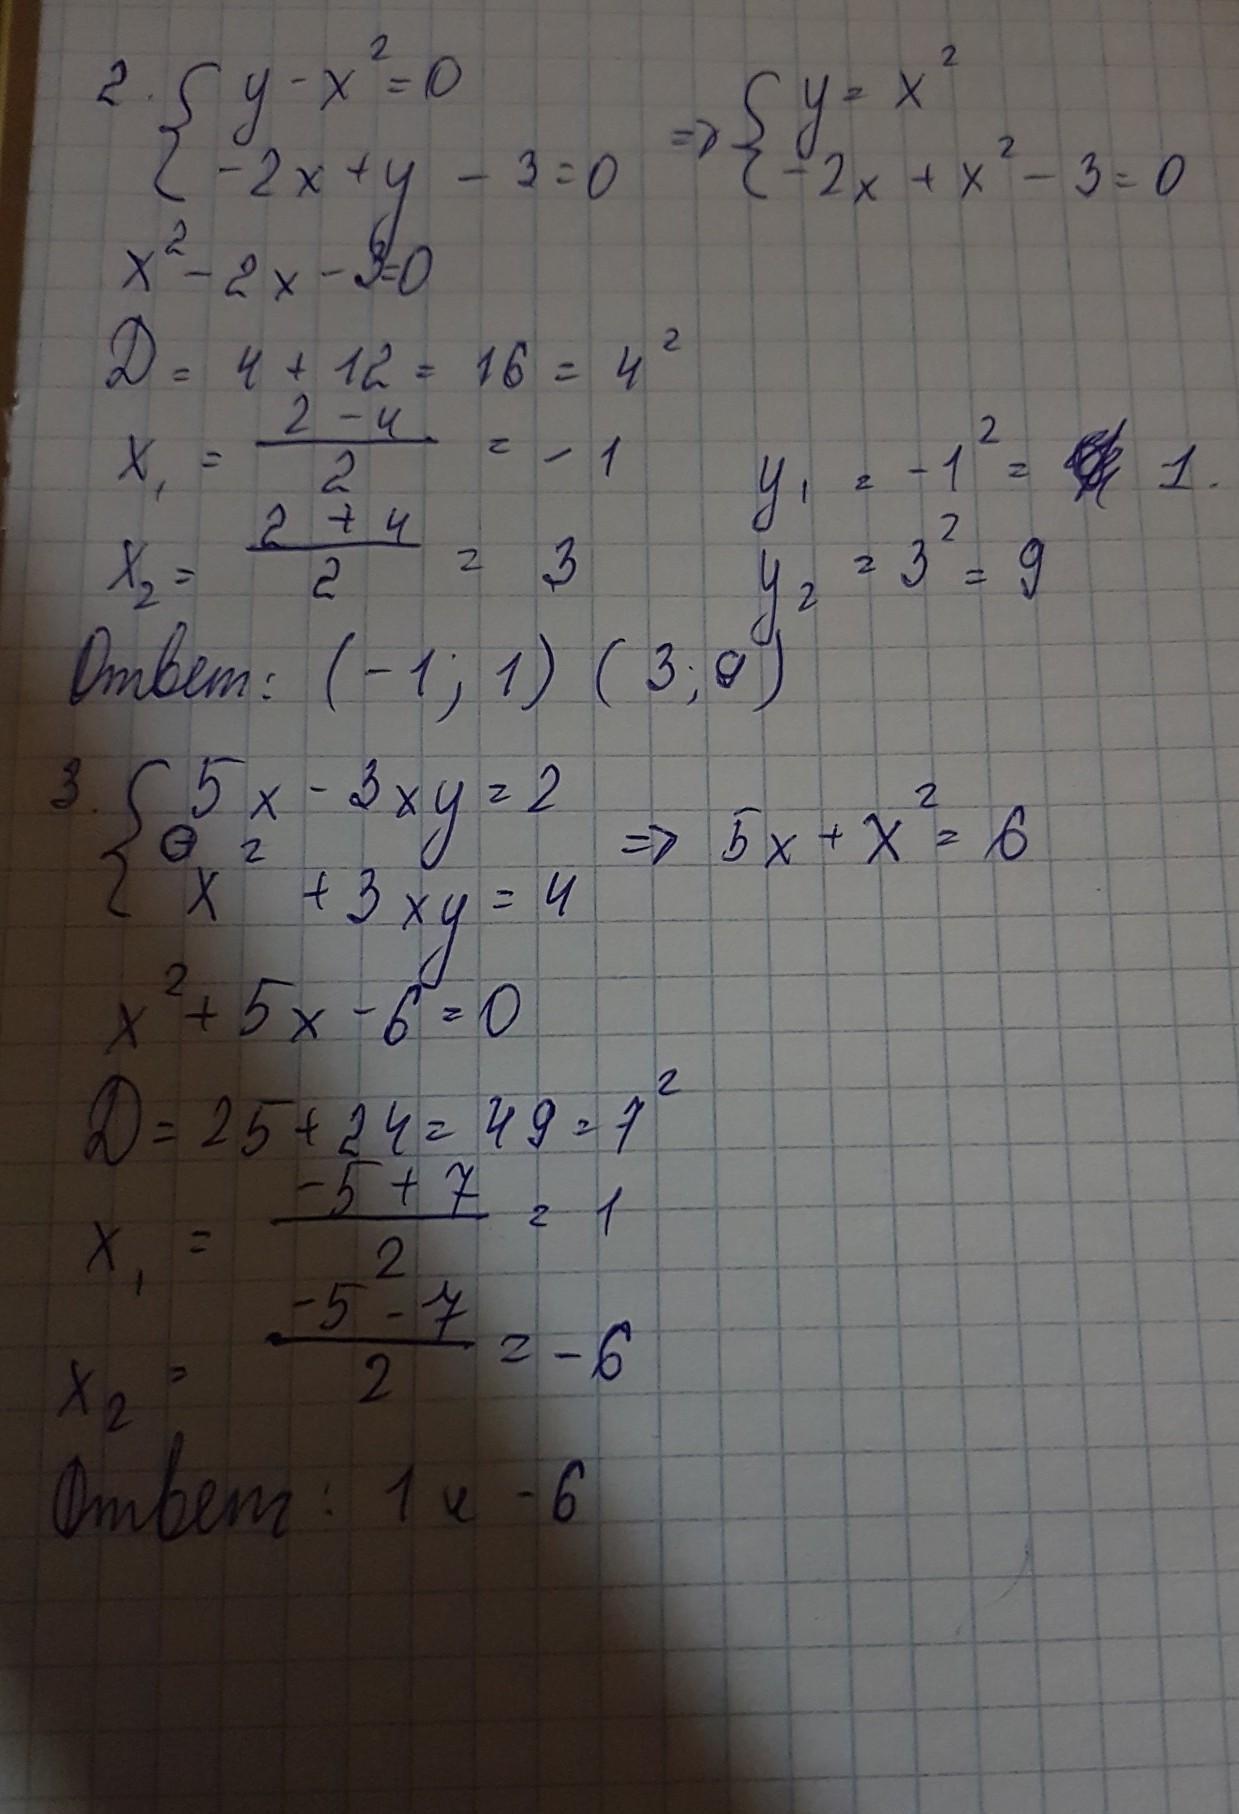 2. { y - x² = 0 => { y = x²
{ -2x + y - 3 = 0 { -2x + x² - 3 = 0
x² - 2x - 3 = 0
D = 4 + 12 = 16 = 4²
x₁ = (2 - 4)/2 = -1 y₁ = -1² = 1.
x₂ = (2 + 4)/2 = 3 y₂ = 3² = 9
Ответ: (-1; 1) (3; 9)
3. { 5x - 3xy = 2 => 5x + x² = 6
{ x² + 3xy = 4
x² + 5x - 6 = 0
D = 25 + 24 = 49 = 7²
x₁ = (-5 + 7)/2 = 1
x₂ = (-5 - 7)/2 = -6
Ответ: 1 и -6